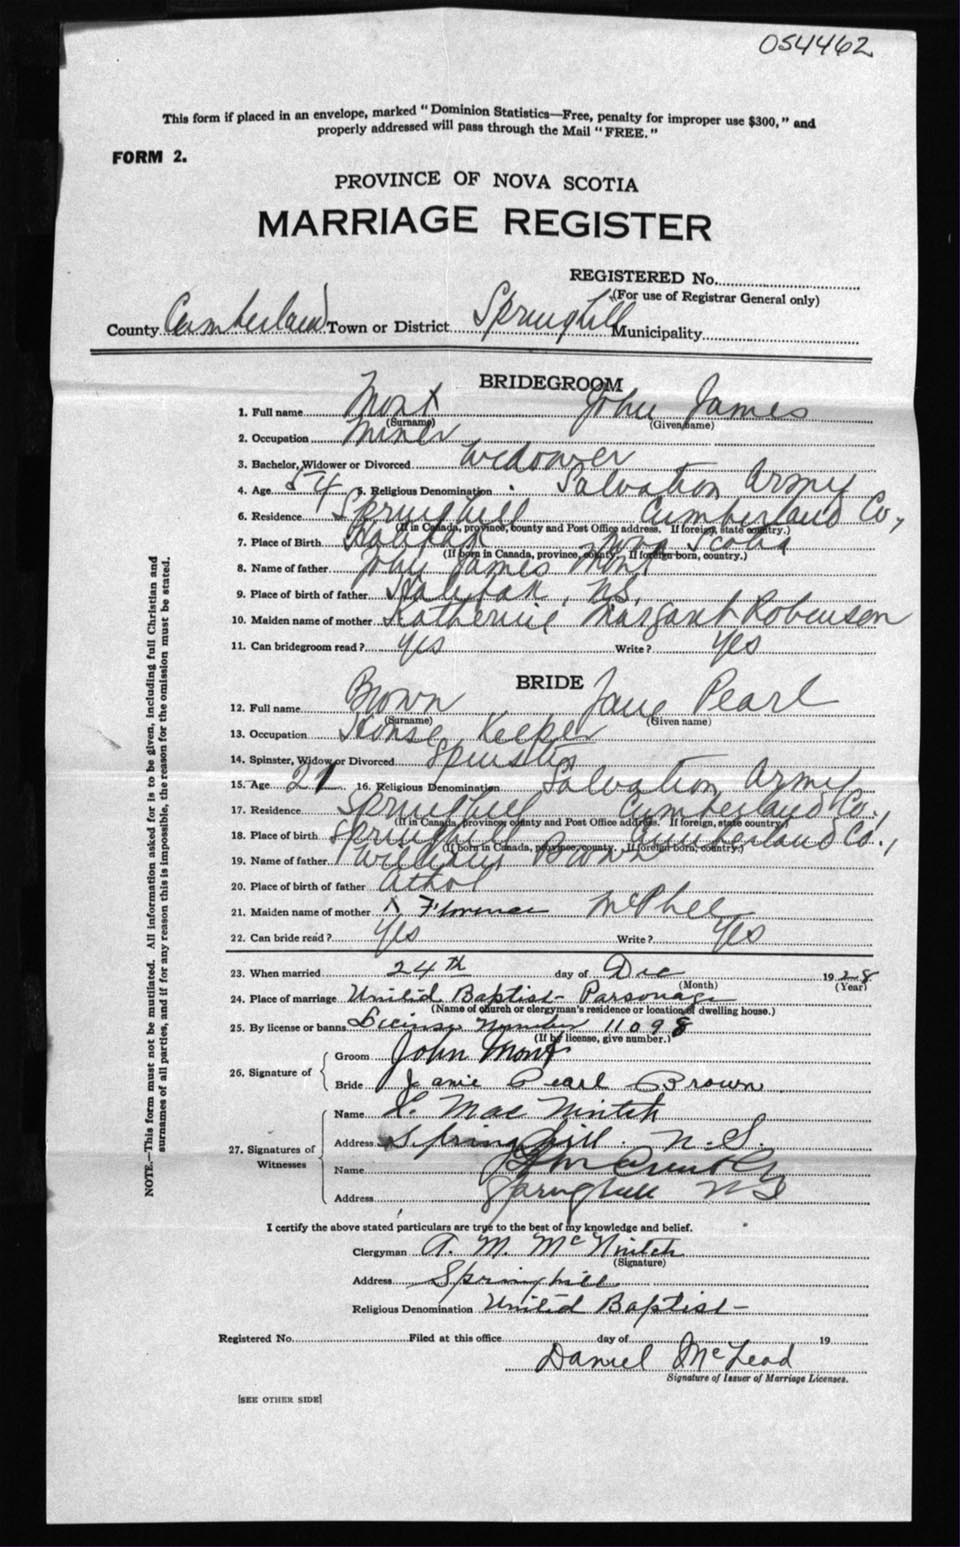 054462
This form if placed in an envelope, marked "Dominion Statistics—Free, penalty for improper use $300," and
properly addressed will pass through the Mail "FREE."
FORM 2.
PROVINCE OF NOVA SCOTIA
MARRIAGE REGISTER
REGISTERED No.
(For use of Registrar General only)
County Cumberland Town or District Springhill Municipality
BRIDEGROOM
1. Full name Mont John James
(Surname) (Given name)
2. Occupation Miner
3. Bachelor, Widower or Divorced Widower
4. Age 54 5. Religious Denomination Salvation Army
6. Residence Springhill Cumberland Co,
(If in Canada, province, county and Post Office address. If foreign, state country.)
7. Place of Birth Halifax Nova Scotia
(If born in Canada, province, county. If foreign born, country.)
8. Name of father John James Mont
9. Place of birth of father Halifax, N.S.
10. Maiden name of mother Katherine Margaret Robenson
11. Can bridegroom read? Yes Write? Yes
BRIDE
12. Full name Brown Jane Pearl
(Surname) (Given name)
13. Occupation House Keeper
14. Spinster, Widow or Divorced Spinster
15. Age 21 16. Religious Denomination Salvation Army
17. Residence Springhill Cumberland Co.,
(If in Canada, province, county and Post Office address. If foreign, state country)
18. Place of birth Springhill Cumberland Co.,
(If born in Canada, province, county. If foreign born, country.)
19. Name of father William Brown
20. Place of birth of father Athol
21. Maiden name of mother Florence McPhee
22. Can bride read? Yes Write? Yes
23. When married 24th day of Dec 1928
(Month) (Year)
24. Place of marriage United Baptist Parsonage
(Name of church or clergyman's residence or location of dwelling house.)
25. By license or banns License Number 11098
(If by license, give number.)
26. Signature of
Groom John Mont
Bride Janie Pearl Brown
27. Signatures of Witnesses
Name L. MacNintch
Address Springhill. N.S.
Name
Address Springhill NS
I certify the above stated particulars are true to the best of my knowledge and belief.
Clergyman A. M. McNintch
(Signature)
Address Springhill
Religious Denomination United Baptist
Registered No. Filed at this office day of 19
Daniel McLeod
Signature of Issuer of Marriage Licenses.
[SEE OTHER SIDE]
NOTE.—This form must not be mutilated. All information asked for is to be given, including full Christian and
surnames of all parties, and if for any reason this is impossible, the reason for the omission must be stated.